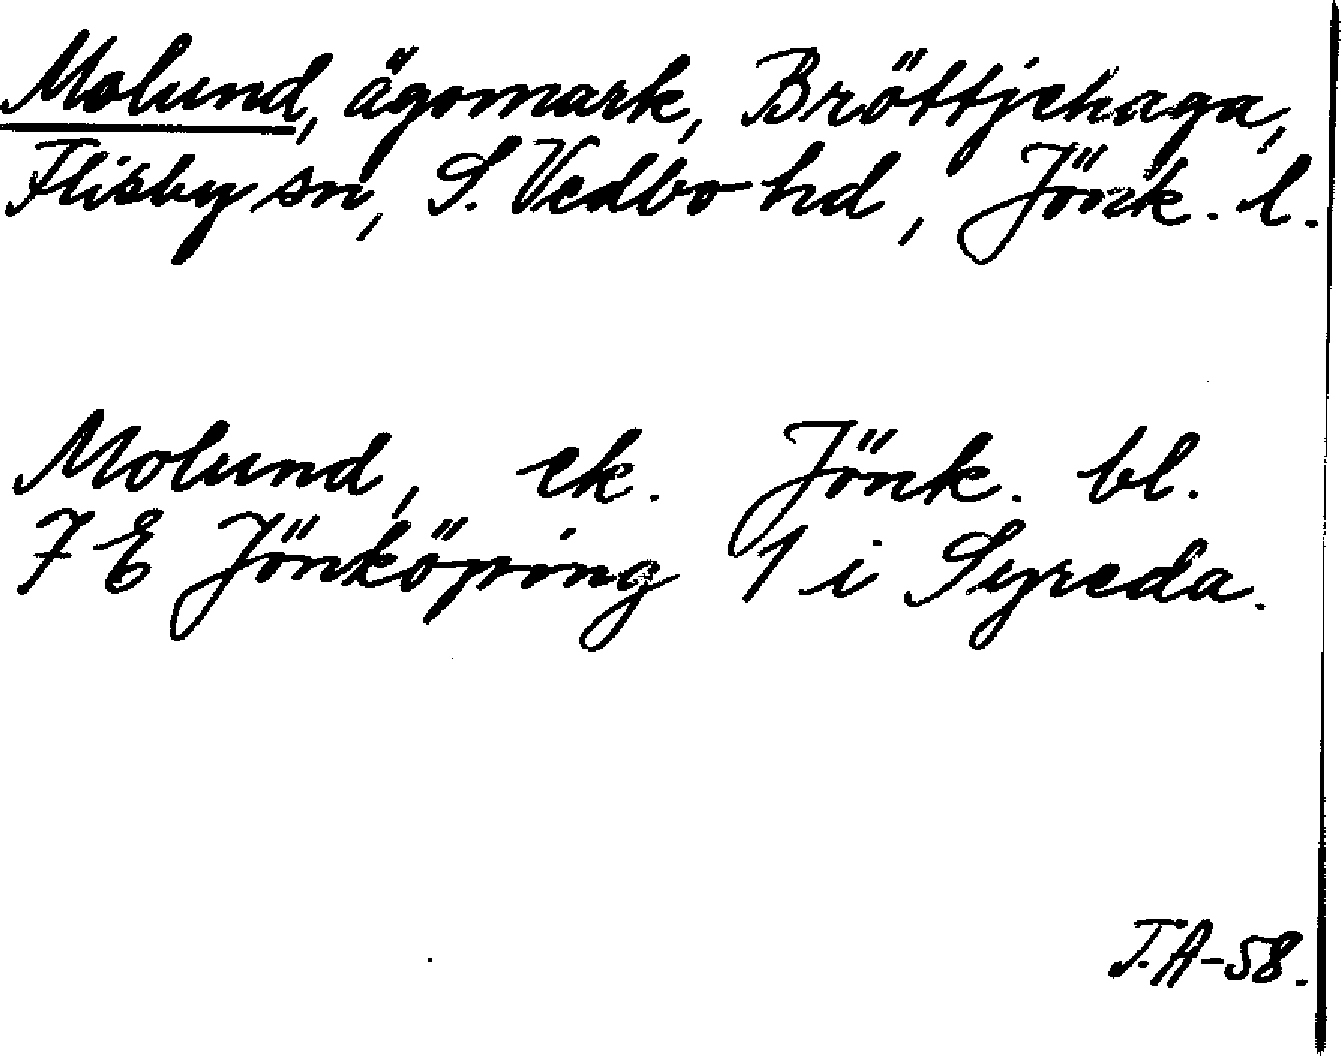 Molund, ägomark, Bröttjehaga,
Flisby sn, S. Vedbo hd, Jönk. l.
Molund, ek. Jönk. bl.
7 E Jönköping 1 i Syreda.
T.A-58.